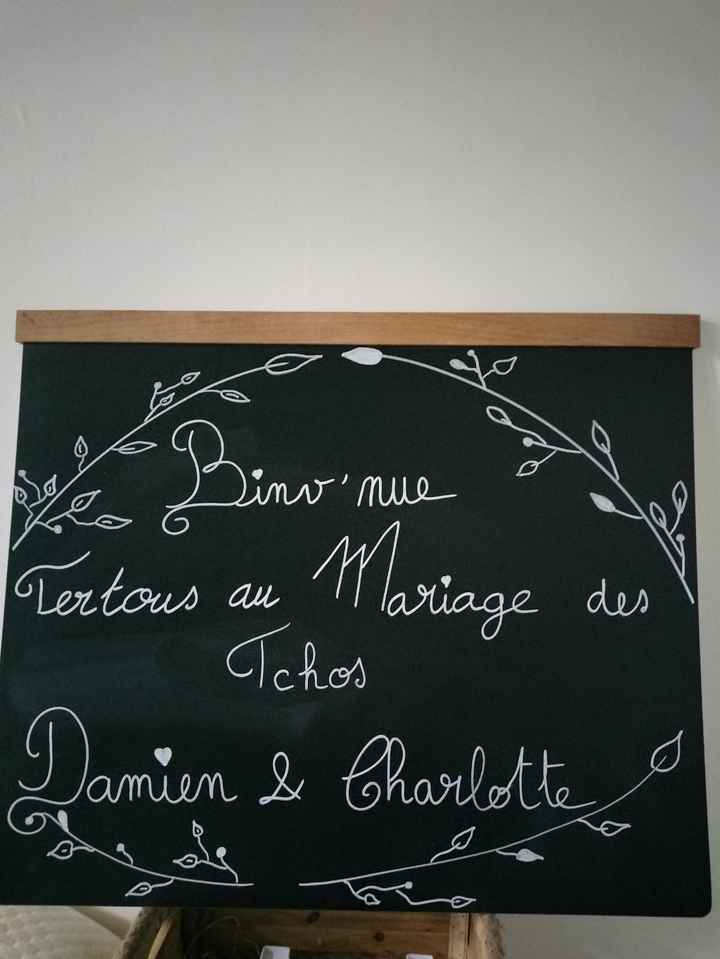 Binv'nue
Tertous au Mariage des
Tchos
Damien & Charlotte